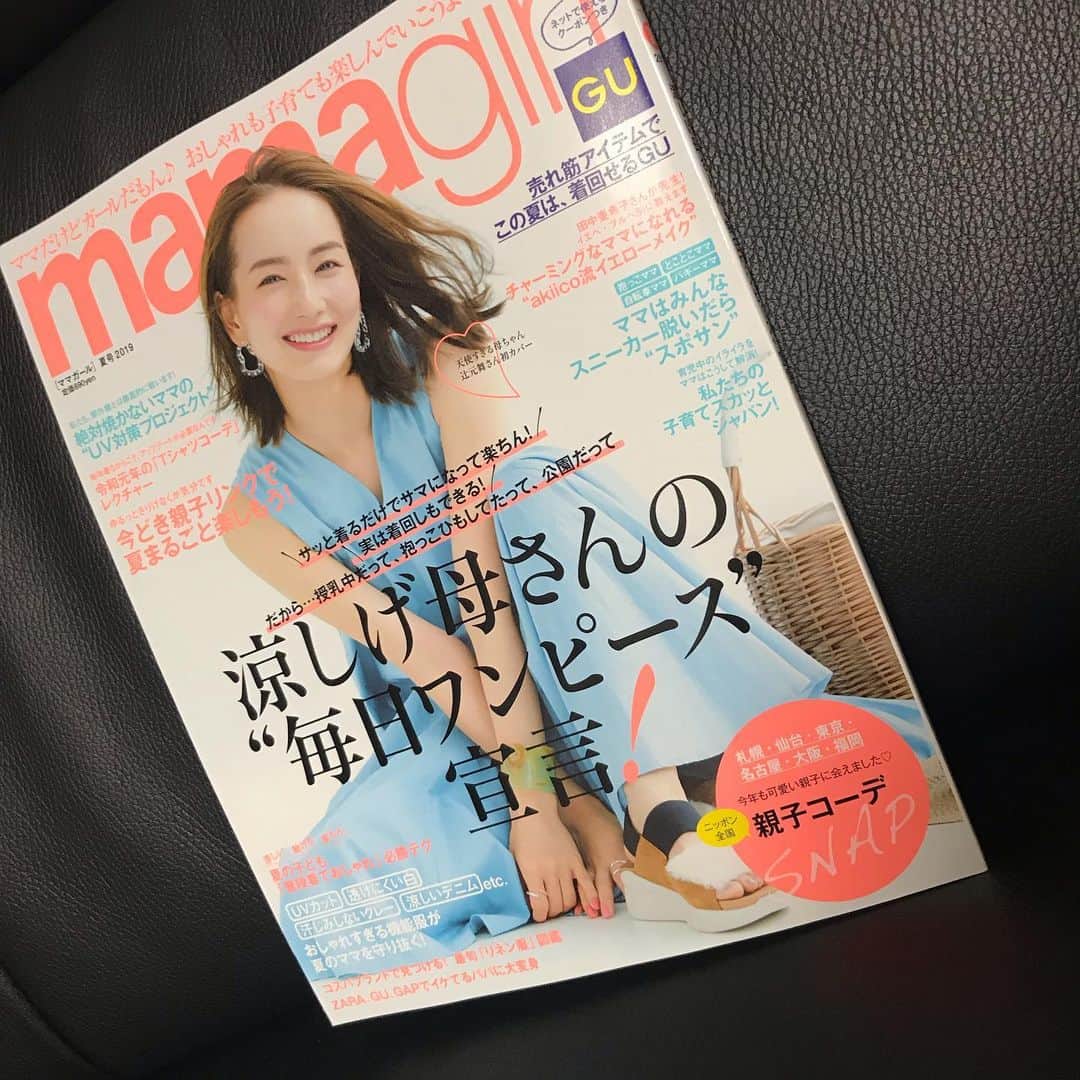 ママだけどガールだもん♪ おしゃれも子育ても楽しんでいこうよ
mamagirl
ネットで使える
クーポンつき
GU
売れ筋アイテムで
この夏は、着回せるGU
田中亜希子さんが先生!
チャーミングなママになれる
“akiico流イエローメイク”
抱っこママ
とことこママ
自転車ママ
バギーママ
ママはみんな
スニーカー脱いだら
“スポサン”
育児中のイライラを
ママはこうして解消!
私たちの
子育てスカッと
ジャパン!
天使すぎる母ちゃん
辻元舞さん初カバー
[ママガール] 夏号 2019
定価690yen
絶対焼かないママの
“UV対策プロジェクト”
令和元年の「Tシャツコーデ」
レクチャー
ゆるっとさりげなくが気分です
今どき親子リンクで
夏まるごと楽しもう!
サッと着るだけでサマになって楽ちん!
実は着回しもできる!
だから…授乳中だって、抱っこひもしてたって、公園だって
涼しげ母さんの
“毎日ワンピース”
宣言!
札幌・仙台・東京・
名古屋・大阪・福岡
今年も可愛い親子に会えました♡
ニッポン
全国
親子コーデ
SNAP
夏の子ども
「普段着でおしゃれ」必勝テク
UVカット
透けにくい白
汗じみしないグレー
涼しいデニム
etc.
おしゃれすぎる機能服が
夏のママを守り抜く!
コスパブランドで見つける! 最旬「リネン服」図鑑
ZARA、GU、GAPでイケてるパパに大変身